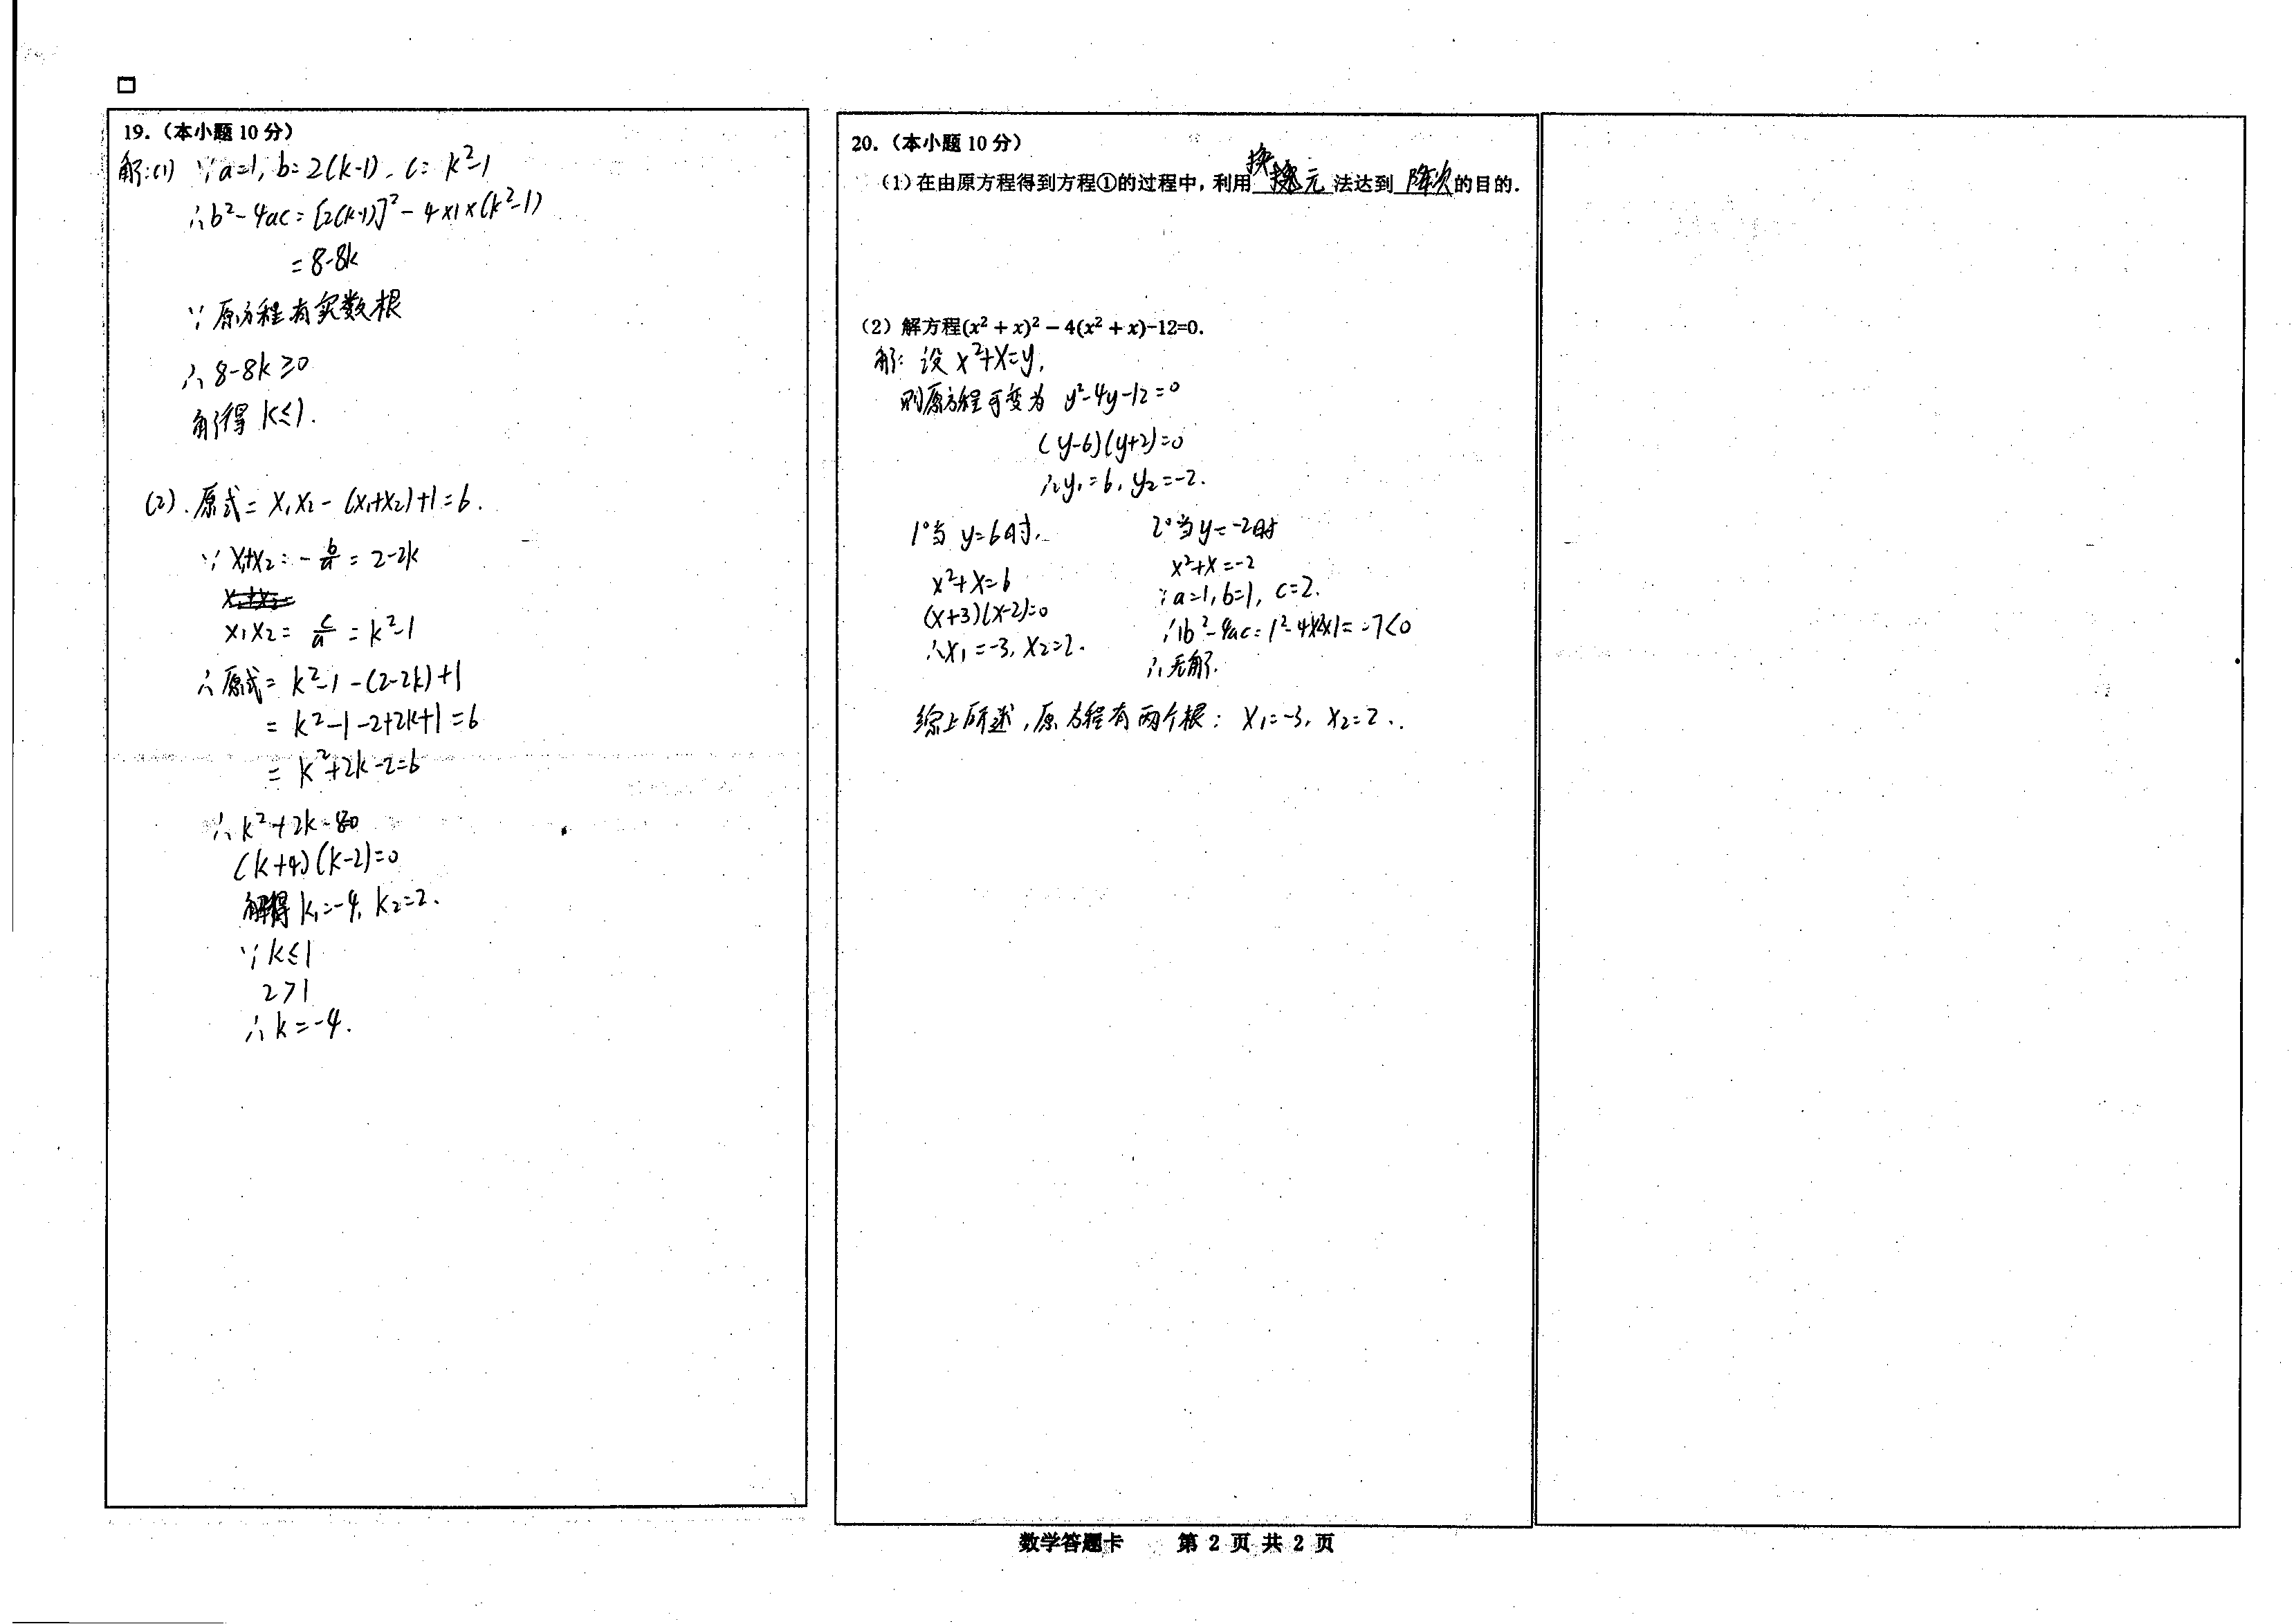 19.（本小题 10 分）
解:(1) ∵a=1, b=2(k-1), c= k²-1
∴b²-4ac=[2(k-1)]²-4×1×(k²-1)
=8-8k
∵原方程有实数根
∴8-8k≥0
解得 k≤1.
(2).原式= x₁x₂-(x₁+x₂)+1=6.
∵x₁+x₂=-b/a=2-2k
x₁x₂= c/a =k²-1
∴原式= k²-1-(2-2k)+1
= k²-1-2+2k+1=6
= k²+2k-2=6
∴k²+2k-80
(k+4)(k-2)=0
解得 k₁=-4, k₂=2.
∵k≤1
2>1
∴k=-4.
20.（本小题 10 分）
（1）在由原方程得到方程①的过程中，利用 换元 法达到 降次 的目的.
（2）解方程(x² + x)² − 4(x² + x)−12=0.
解: 设 x²+x=y,
则原方程可变为 y²-4y-12=0
(y-6)(y+2)=0
∴y₁=6, y₂=-2.
1°当 y=6时,
x²+x=6
(x+3)(x-2)=0
∴x₁=-3, x₂=2.
2°当y=-2时
x²+x=-2
∵a=1, b=1, c=2.
∴b²-4ac=1²-4×2×1=-7<0
∴无解.
综上所述,原方程有两个根: x₁=-3, x₂=2.
数学答题卡 第 2 页 共 2 页